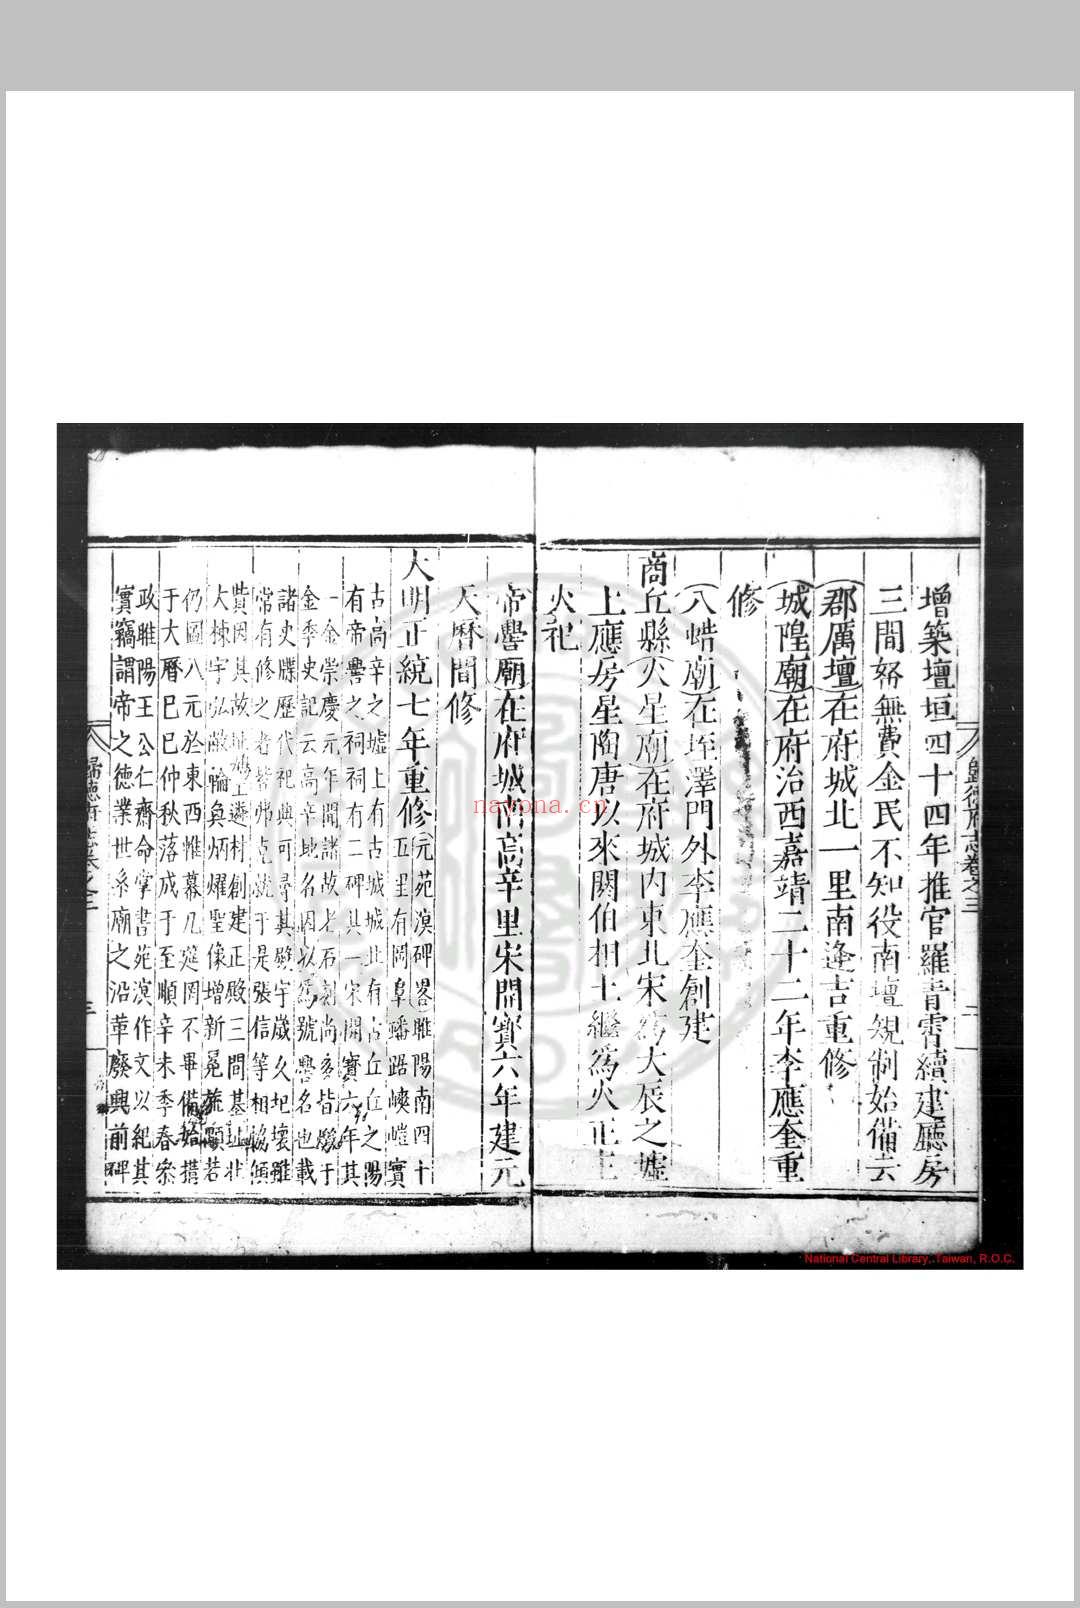 增築壇垣四十四年推官羅青霄續建廳房
三間努無費金民不知役南壇規制始備云
郡厲壇在府城北一里南逢吉重修
城隍廟在府治西嘉靖二十二年李應奎重
修
八蜡廟在垤澤門外李應奎創建
商丘縣火星廟在府城内東北宋為大辰之墟
上應房星陶唐以來閼伯相土繼為火正主
火祀
帝嚳廟在府城南高辛里宋開寶六年建元
天曆間修
大明正統七年重修元苑漠碑畧睢陽南四十
五里有岡阜蟠踞嵥嵦實
古高辛之墟上有古城城北有古丘丘之陽
有帝嚳之祠祠有二碑其一宋開寶六年其
一金崇慶元年聞諸故老石刻尚多皆燬于
金季史記云高辛地名因以為號嚳名也載
諸史牒歷代祀典可尋其殿宇歲久圮壞雖
常有修之者皆弗克就于是張信等相協傾
貲因其故址鳩工遴材創建正殿三間基址非
大棟宇弘敞輪奐炳燿聖像增新冕旒顒若
仍圖八元於東西惟幕几筵罔不畢備始搆
于大曆巳巳仲秋落成于至順辛未季春叅
政睢陽王公仁齋命掌書苑漠作文以紀其
實竊謂帝之德業世系廟之沿革廢興前碑
歸德府志卷之三
三
歸德府志卷之三
nayona.cn
National Central Library, Taiwan, R.O.C.